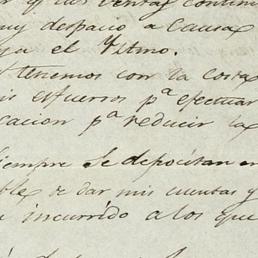 y las ventas contin
muy despacio a causa
ya el Ultmo.
tenemos con la costa
is esfuerzos pa. efectuar
cacion pa. reducir la
siempre se depositan en
ble, de dar mis cuentas y
incurrido a los que